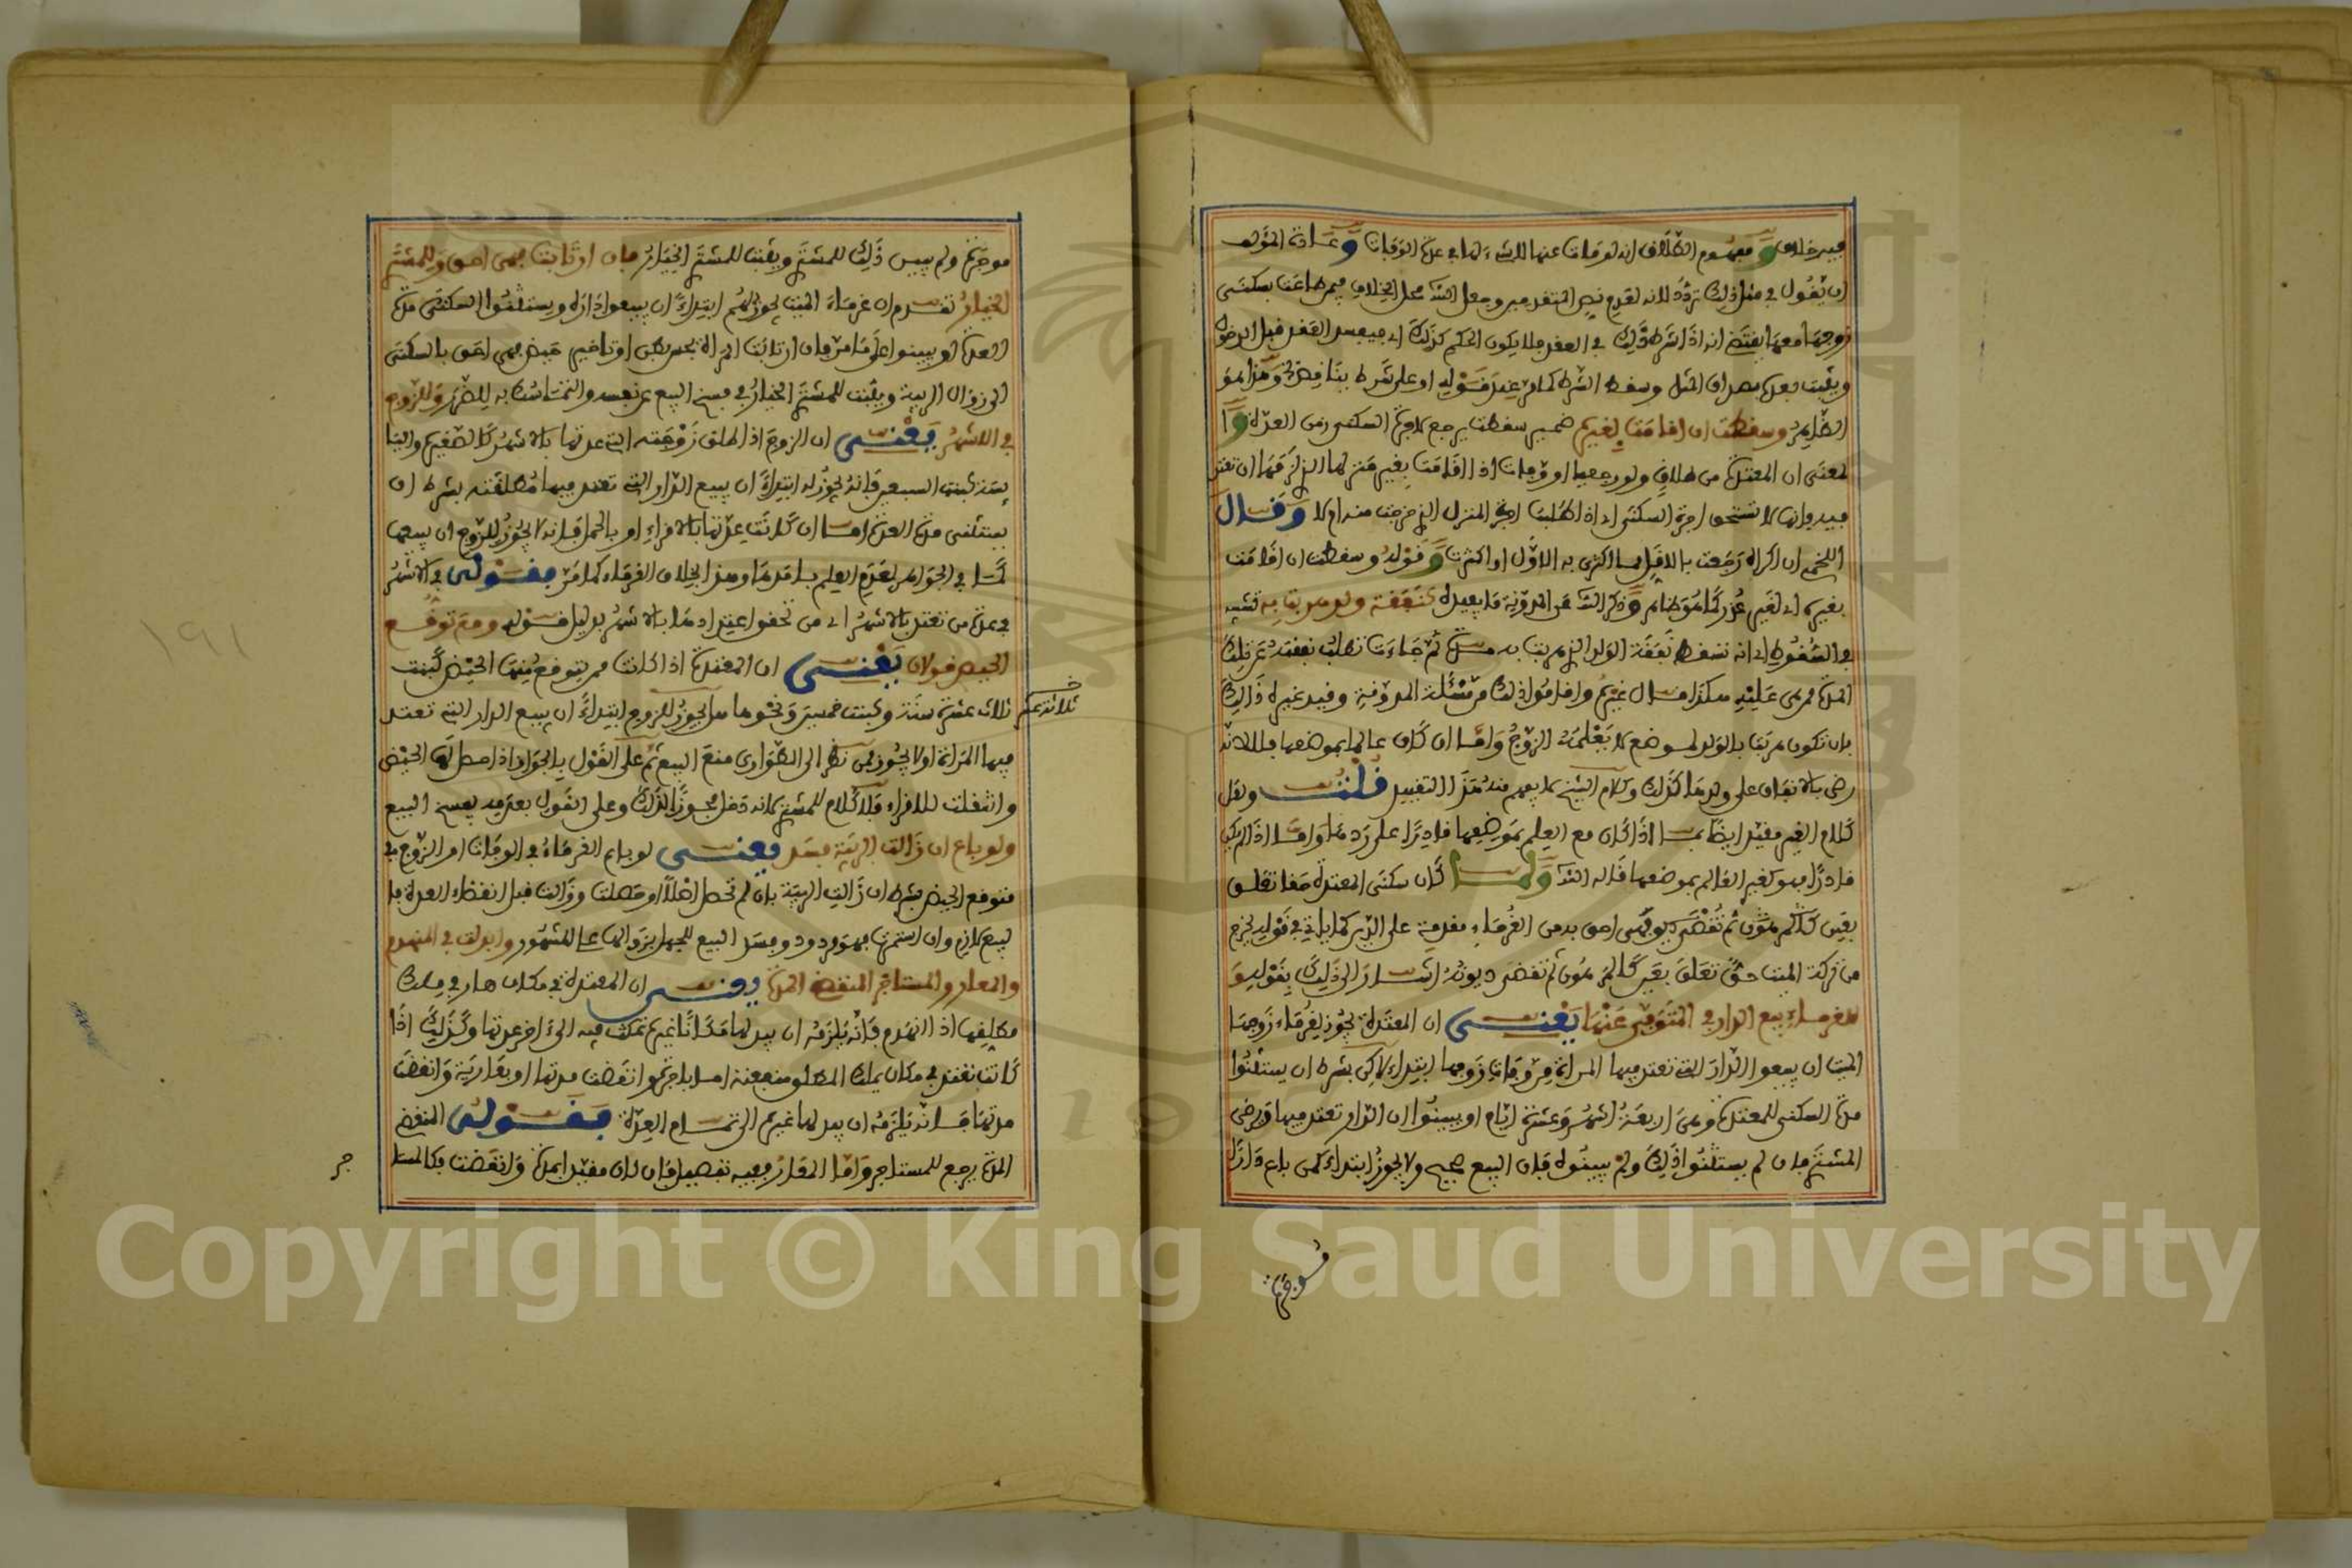 فيه خلاف ومفهوم الطلاق انه لو مات عنها لا شيء لها في عدة الوفاة وعادة المؤلف
ان يقول في مثل ذلك تردد لانه لعدم نص المتقدمين وجعل محل الخلاف فيمن طاعت بسكنى
زوجها معها يقتضي انه اذا شرط ذلك في العقد فلا يكون الحكم كذلك اي فيفسد العقد قبل الدخول
ويثبت بعده بصداق المثل وسقط الشرط كما مر عند قوله او على شرط يناقض وهذا هو
الظاهر وسقطت ان اقامت بغيره ضمير سقطت يرجع لاجرة السكنى زمن العدة و
المعنى ان المعتدة من طلاق ولو رجعيا او وفاة اذا اقامت بغير منزلها الذي لزمها ان تعتد
فيه فانها لا تستحق اجرة السكنى اي اذا طلبت اجرة المنزل الذي خرجت منه ام لا وقال
اللخمي ان اكراه رجعت بالاقل مما اكترى به الاول او اكترت وقوله وسقطت ان اقامت
بغيره اي لغير عذر كما هو ظاهر وذكر عن المدونة ما يفيده كنفقة ولد هربت به تشبيه
في السقوط اي انه تسقط نفقة الولد الذي هربت به مدة ثم جاءت تطلب نفقته عن تلك
المدة ممن هي عليه هكذا قال غيره واقاموا ذلك من مسئلة المدونة وقيد غيره ذلك
بان تكون هربت بالولد لموضع لا يعلمه الزوج واما ان كان عالما بموضعها فلا لانه
رضي بالانفاق على ولدها كذلك وكلام الشيخ لا يفهم منه هذا التقييد قلت ولعل
كلام الغير مقيد ايضا بما اذا كان مع العلم بموضعها قادرا على ردها واما اذا لم يكن
قادرا فهو كغير العالم بموضعها قاله ولما كان سكنى المعتدة حقا تعلق
بعين كالمرهون ثم تقضى ديونه فهي احق به من الغرماء مقدمة على الدين كما ياتي في قوله يخرج
من تركة الميت حق تعلق بعين كالمرهون ثم تقضى ديونه اشار الى ذلك بقوله و
للغرماء بيع الدار في المتوفى عنها يعني ان المعتدة يجوز لغرماء زوجها
الميت ان يبيعوا الدار التي تعتد فيها المراة من وفاة زوجها ابتداء لاكن بشرط ان يستثنوا
مدة السكنى للمعتدة وهي اربعة اشهر وعشرة ايام او يبينوا ان الدار تعتد فيها ورضي
المشتري فان لم يستثنوا ذلك ولم يبينوه فان البيع صحيح ولا يجوز ابتداء كمن باع دارا
موجرة
موجرة ولم يبين ذلك للمشتري ويثبت للمشتري الخيار فان ارتابت فهي احق وللمشتري
الخيار تقدم ان غرماء الميت يجوز لهم ابتداء ان يبيعوا داره ويستثنوا السكنى مدة
العدة او يبينوا على ما مر فان ارتابت المراة بحس بطن او تاخير حيض فهي احق بالسكنى
الى زوال الريبة ويثبت للمشتري الخيار في فسخ البيع عن نفسه والتماسك به للضرر وللزوج
في الاشهر يعني ان الزوج اذا طلق زوجته التي عدتها بالاشهر كالصغيرة واليا
يسة كبنت السبعين فانه يجوز له ابتداء ان يبيع الدار التي تعتد فيها مطلقته بشرط ان
يستثنى مدة العدة اما ان كانت عدتها بالاقراء او بالحمل فانه لا يجوز للزوج ان يبيعها
لعدم العلم بامدها وهذا بخلاف الغرماء كما مر فقوله في الاشهر
في عدة من تعتد بالاشهر اي من تحقق اعتدادها بالاشهر بدليل قوله ومع توقع
الحيض قولان يعني ان المعتدة اذا كانت ممن يتوقع منها الحيض كبنت
ثلاث عشرة سنة وكبنت خمسين ونحوها هل يجوز للزوج ابتداء ان يبيع الدار التي تعتد
ثلاثة عشر
فيها المراة او لا يجوز فمن نظر الى الطوارئ منع البيع ثم على القول بالجواز اذا حصل لها الحيض
وانتقلت للاقراء فلا كلام للمشتري لانه دخل مجوزا لذلك وعلى القول بعدمه يفسخ البيع
ولو باع ان زالت الريبة فسد يعني لو باع الغرماء في الوفاة او الزوج في
متوقع الحيض بشرط ان زالت الريبة بان لم تحصل اصلا او حصلت وزالت قبل انقضاء العدة فا
لبيع لازم وان استمرت فهو مردود وفسد البيع للجهل بزوالها على المشهور وابدلت في المنهدم
والمعار والمستاجر المنقضي المدة يعني ان المعتدة في مكان هار في ملك
مطلقها اذا انهدم فانه يلزمه ان يبدلها مكانا غيره تمكث فيه الى اخر عدتها وكذلك اذا
كانت تعتد في مكان يملك المطلق منفعته اما باجرة وانقضت مدتها او بعارية وانقضت
مدتها فانه يلزمه ان يبدلها غيره الى تمام العدة فقوله المنقضي
المدة يرجع للمستاجر واما المعار ففيه تفصيل فان كان مقيدا بمدة وانقضت فكالمستا
جر
١٩١
Copyright © King Saud University